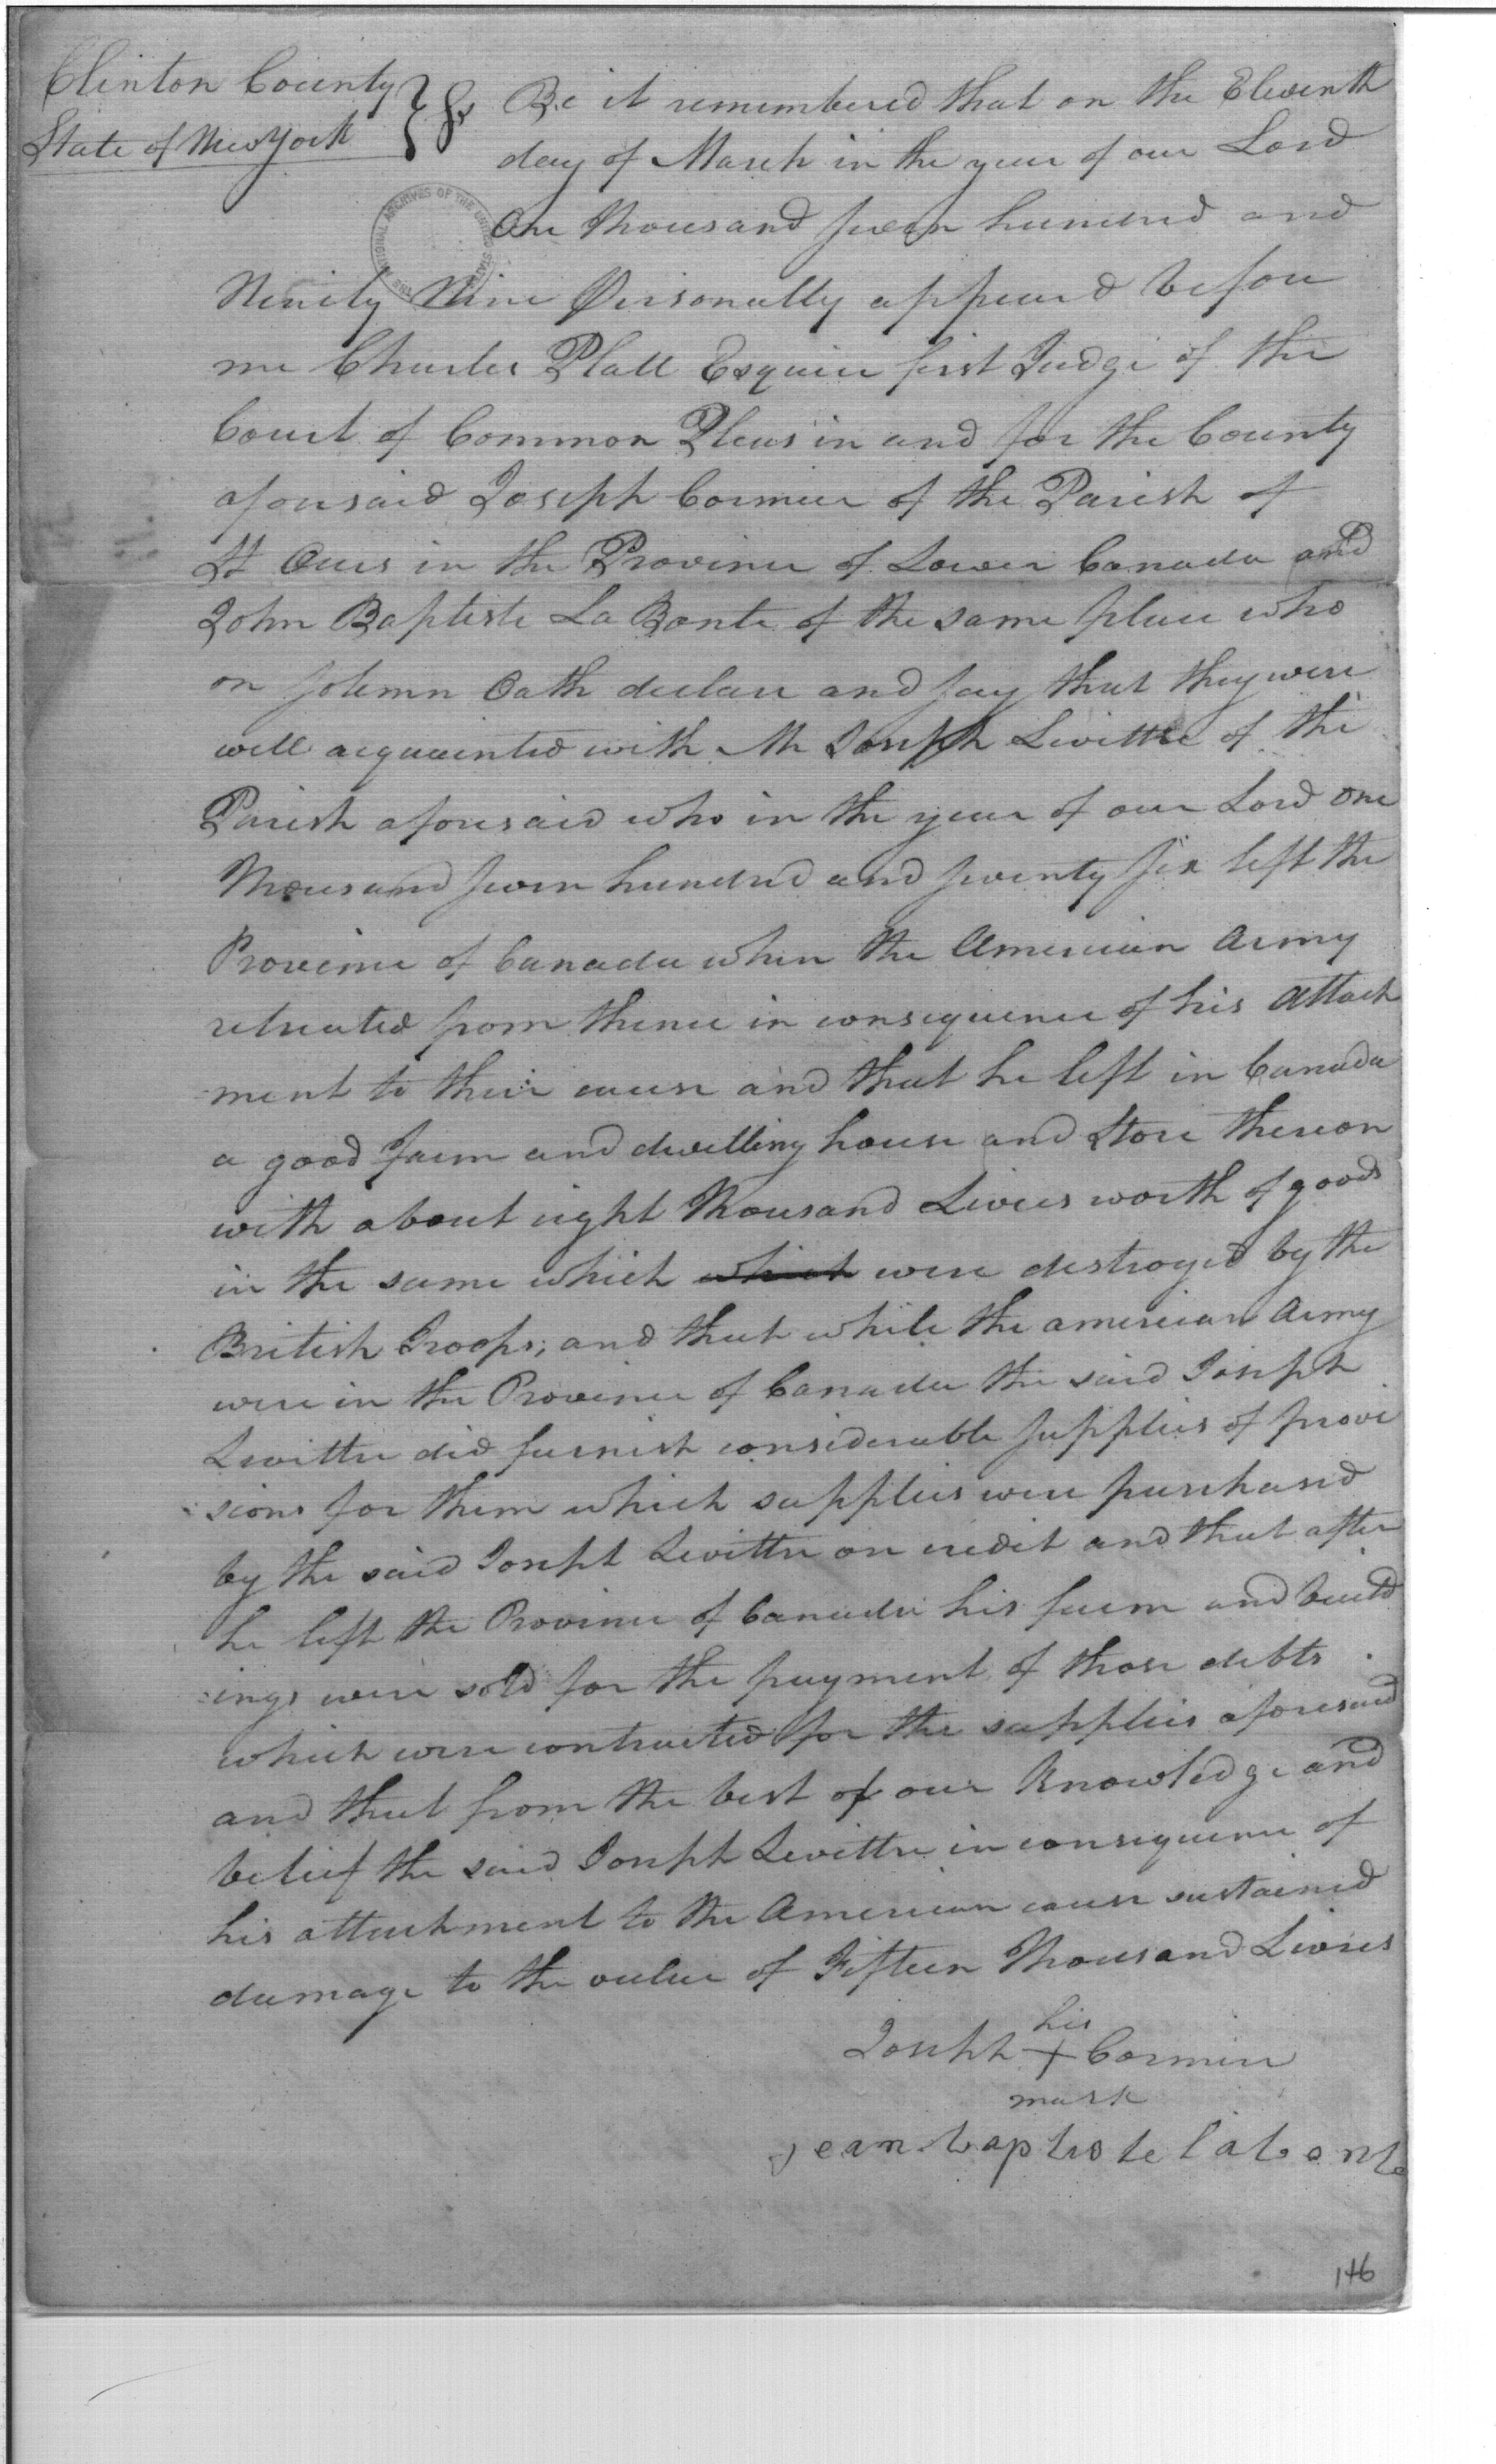 Clinton County } ss Be it remembered that on the Eleventh
State of New York
day of March in the year of our Lord
One thousand seven hundred and
THE NATIONAL ARCHIVES OF THE UNITED STATES
Ninety Nine Personally appeared before
me Charles Platt Esquire first Judge of the
Court of Common Pleas in and for the County
aforesaid Joseph Cormier of the Parish of
St Ours in the Province of Lower Canada and
John Baptiste La Bonte of the same place who
on solemn Oath declare and say that they were
well acquainted with Mr Joseph Levittre of the
Parish aforesaid who in the year of our Lord one
Thousand seven hundred and seventy six left the
Province of Canada when the American Army
retreated from thence in consequence of his attach
ment to their cause and that he left in Canada
a good farm and dwelling house and Store thereon
with about eight Thousand Livres worth of goods
in the same which which were destroyed by the
British Troops; and that while the american Army
were in the Province of Canada the said Joseph
Levittre did furnish considerable supplies of provi
sions for them which supplies were purchased
by the said Joseph Levittre on credit and that after
he left the Province of Canada his farm and build
ings were sold for the payment of those debts
which were contracted for the supplies aforesaid
and that from the best of our Knowledge and
belief the said Joseph Levittre in consequence of
his attachment to the American cause sustained
damage to the value of Fifteen Thousand Livres
his
Joseph + Cormier
mark
jean baptiste labonte
146